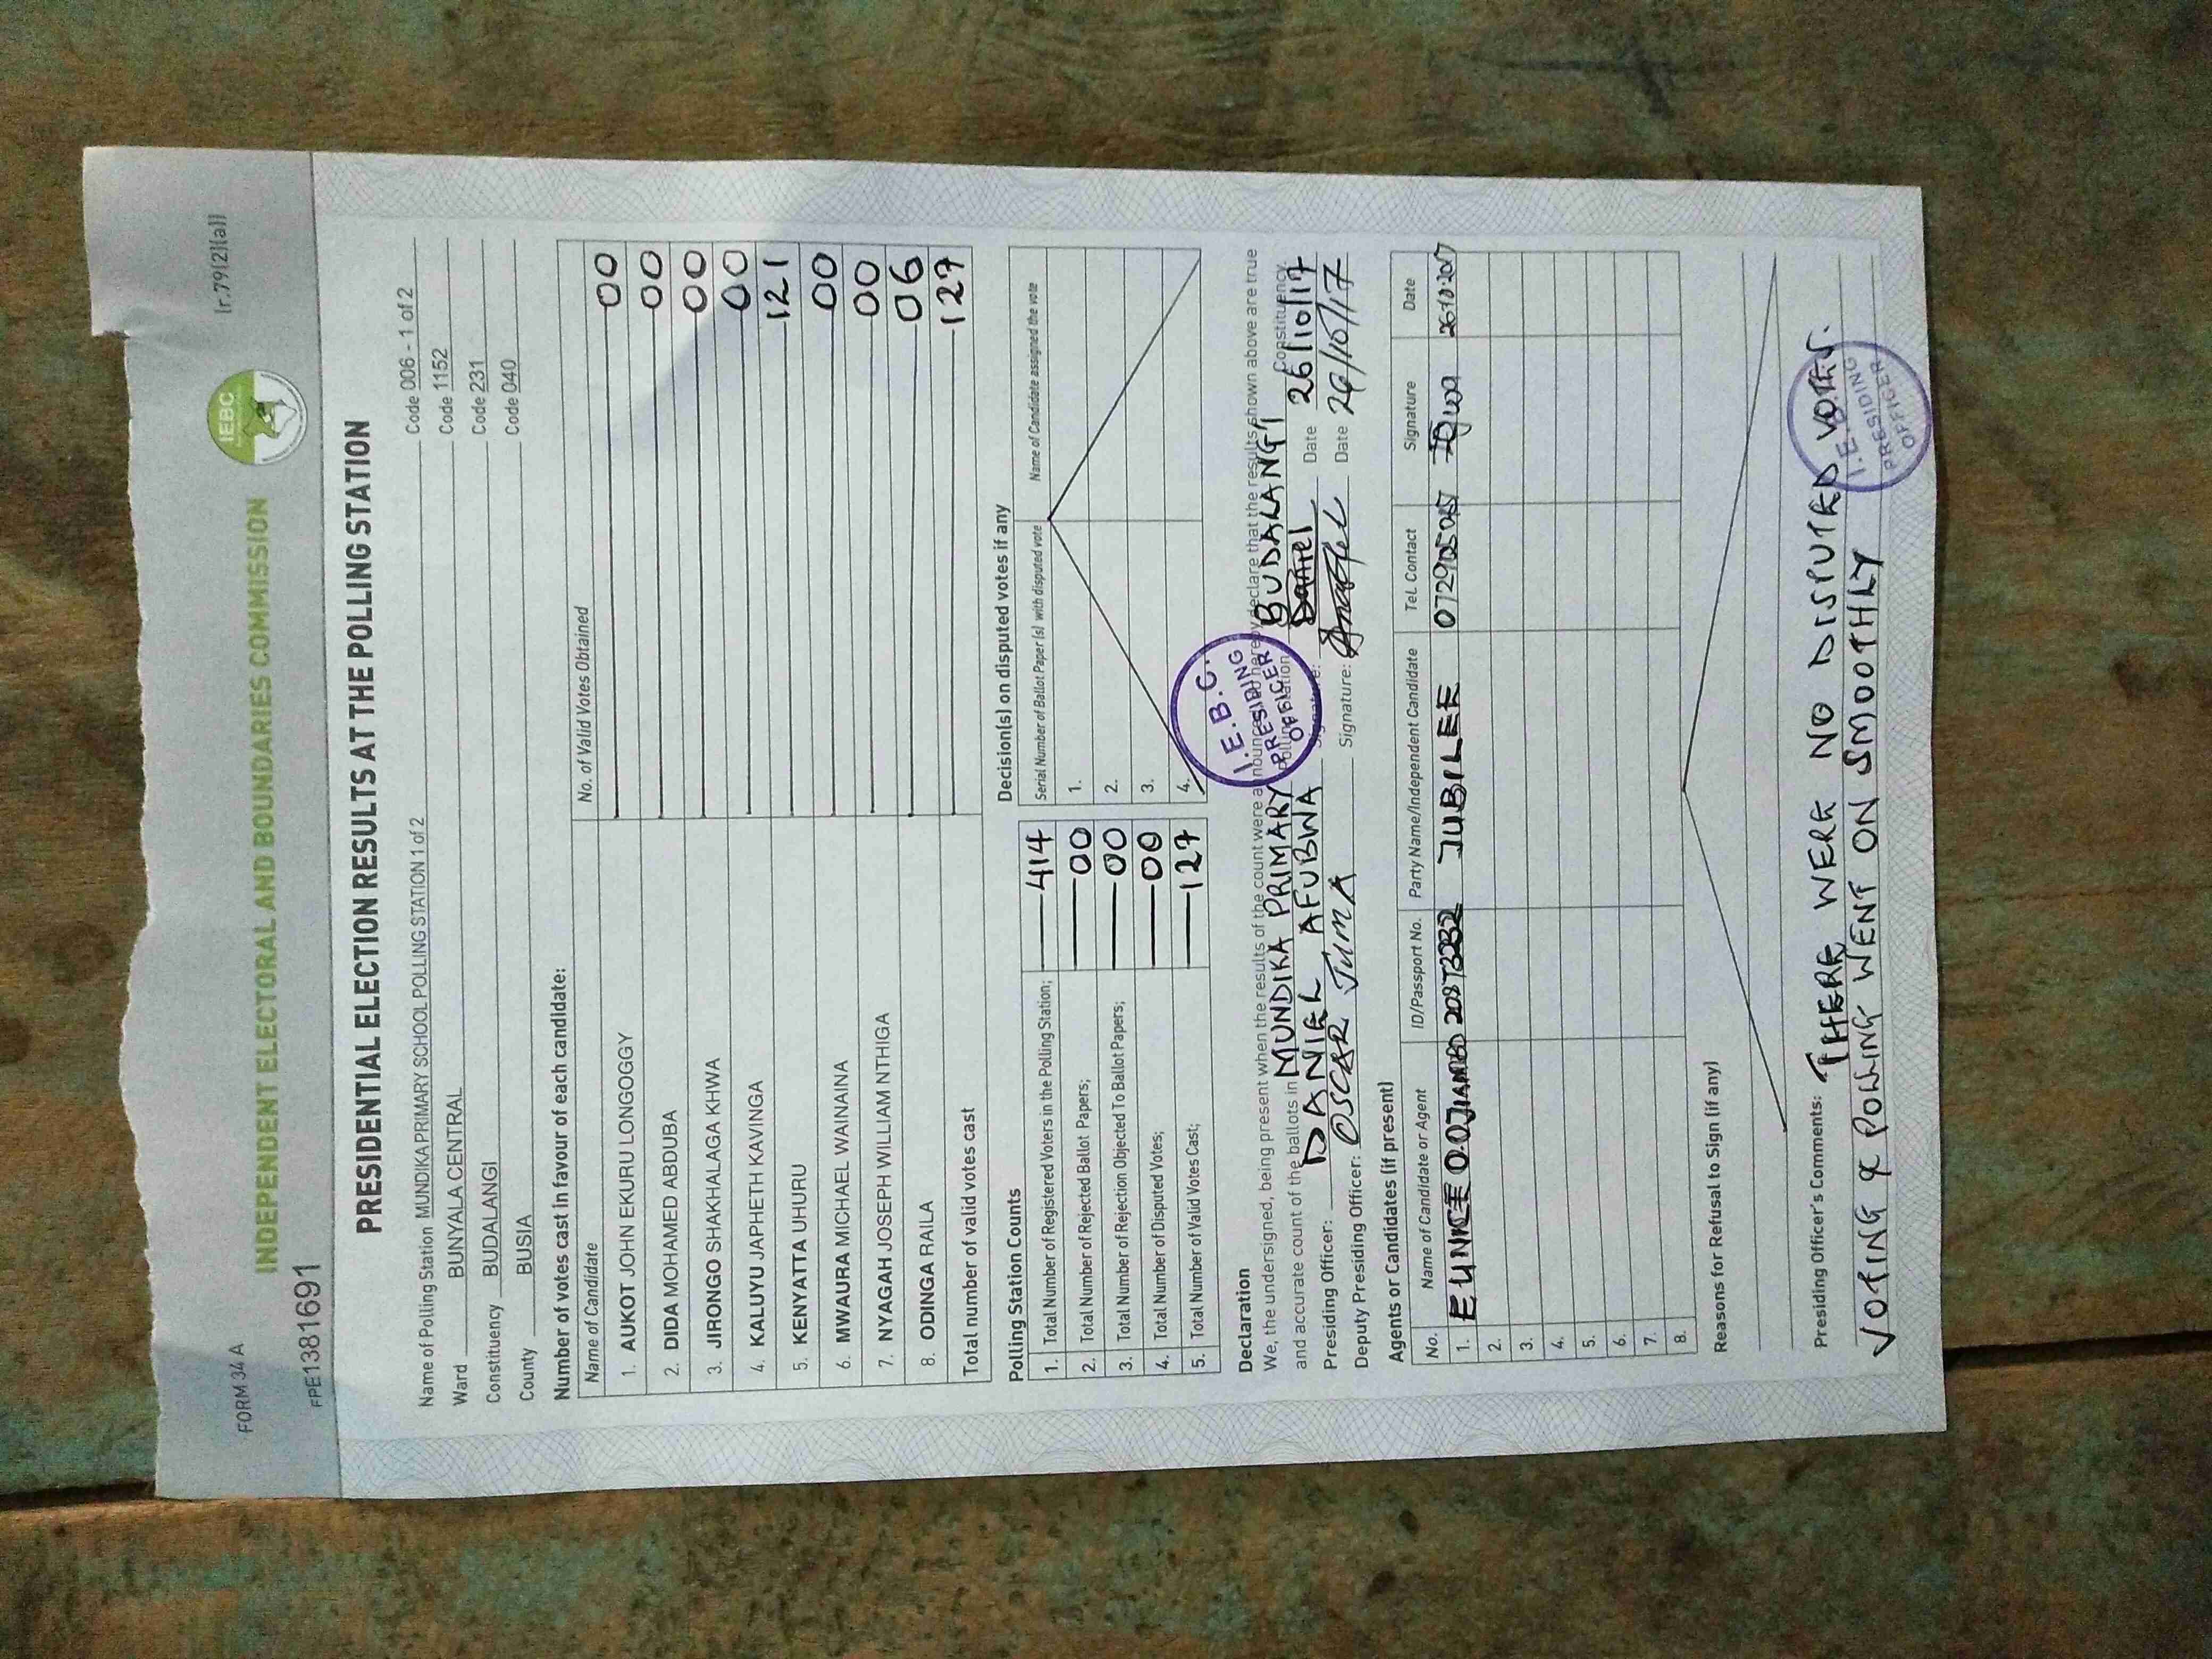 FORM 34 A
[r.79(2)(a)]
IEBC
INDEPENDENT ELECTORAL AND BOUNDARIES COMMISSION
FPE1381691
PRESIDENTIAL ELECTION RESULTS AT THE POLLING STATION
Name of Polling Station MUNDIKA PRIMARY SCHOOL POLLING STATION 1 of 2 Code 006 - 1 of 2
Ward BUNYALA CENTRAL Code 1152
Constituency BUDALANGI Code 231
County BUSIA Code 040
Number of votes cast in favour of each candidate:
Name of Candidate No. of Valid Votes Obtained
1. AUKOT JOHN EKURU LONGOGGY 00
2. DIDA MOHAMED ABDUBA 00
3. JIRONGO SHAKHALAGA KHWA 00
4. KALUYU JAPHETH KAVINGA 00
5. KENYATTA UHURU 121
6. MWAURA MICHAEL WAINAINA 00
7. NYAGAH JOSEPH WILLIAM NTHIGA 00
8. ODINGA RAILA 06
Total number of valid votes cast 127
Polling Station Counts
1. Total Number of Registered Voters in the Polling Station; 414
2. Total Number of Rejected Ballot Papers; 00
3. Total Number of Rejection Objected To Ballot Papers; 00
4. Total Number of Disputed Votes; 00
5. Total Number of Valid Votes Cast; 127
Decision(s) on disputed votes if any
Serial Number of Ballot Paper(s) with disputed vote Name of Candidate assigned the vote
1.
2.
3.
4.
Declaration
We, the undersigned, being present when the results of the count were announced do hereby declare that the results shown above are true
and accurate count of the ballots in MUNDIKA PRIMARY Polling Station BUDALANGI Constituency.
Presiding Officer: DANIEL AFUBWA Signature: Daniel Date 26/10/17
Deputy Presiding Officer: OSCAR JUMA Signature: Date 26/10/17
I.E.B.C.
PRESIDING
OFFICER
Agents or Candidates (if present)
No. Name of Candidate or Agent ID/Passport No. Party Name/Independent Candidate Tel. Contact Signature Date
1. EUNICE O. OJIAMBO JUBILEE 26-10-2017
2.
3.
4.
5.
6.
7.
8.
Reasons for Refusal to Sign (if any)
Presiding Officer's Comments: THERE WERE NO DISPUTED VOTES.
VOTING & POLLING WENT ON SMOOTHLY
I.E.B.C.
PRESIDING
OFFICER